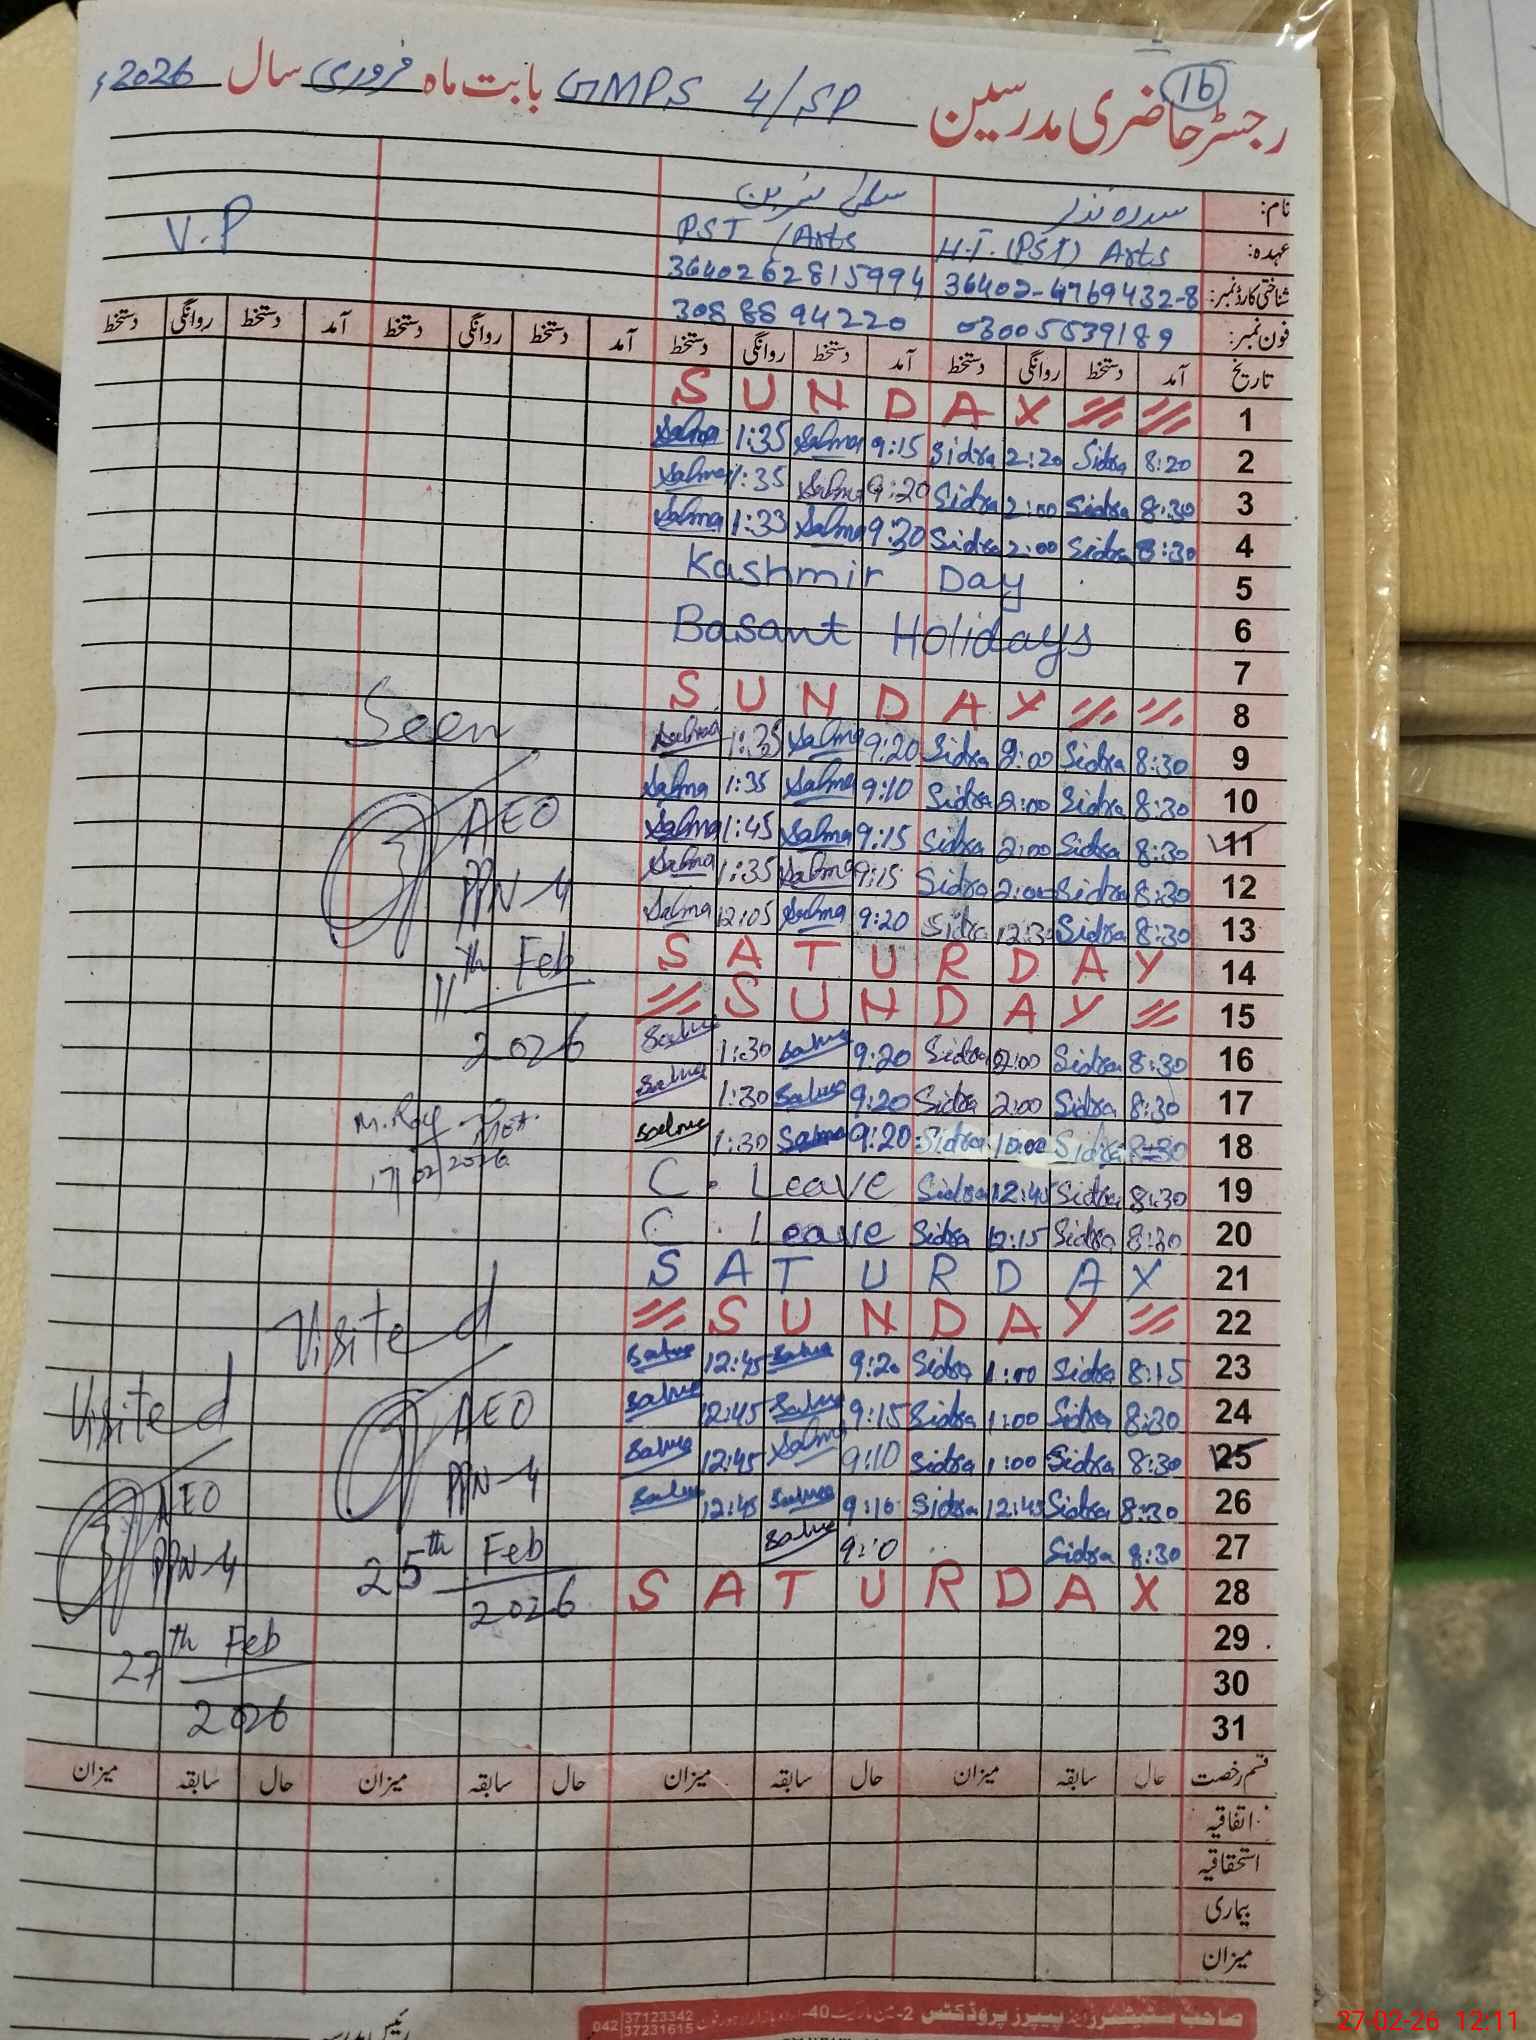 16
رجسٹر حاضری مدرسین GMPS 4/SP بابت ماہ فروری سال 2026ء
نام: سدرہ نذیر سلمیٰ نسرین
عہدہ: H.T. (PST) Arts PST / Arts V.P
شناختی کارڈ نمبر: 36402-4769432-8 3640262815994
فون نمبر: 03005539189 3088894220
تاریخ آمد دستخط روانگی دستخط آمد دستخط روانگی دستخط آمد دستخط روانگی دستخط آمد دستخط روانگی دستخط
S U N D A Y 1
Salma 1:35 Salma 9:15 Sidra 2:20 Sidra 8:20 2
Salma 1:35 Salma 9:20 Sidra 2:00 Sidra 8:30 3
Salma 1:33 Salma 9:30 Sidra 2:00 Sidra 8:30 4
Kashmir Day 5
Basant Holidays 6
7
S U N D A Y 8
Salma 1:35 Salma 9:20 Sidra 2:00 Sidra 8:30 9
Salma 1:35 Salma 9:10 Sidra 2:00 Sidra 8:30 10
Salma 1:45 Salma 9:15 Sidra 2:00 Sidra 8:30 11
Salma 1:35 Salma 9:15 Sidra 2:00 Sidra 8:30 12
Salma 12:05 Salma 9:20 Sidra 12:30 Sidra 8:30 13
S A T U R D A Y 14
S U N D A Y 15
Salma 1:30 Salma 9:20 Sidra 2:00 Sidra 8:30 16
Salma 1:30 Salma 9:20 Sidra 2:00 Sidra 8:30 17
Salma 1:30 Salma 9:20 Sidra 10:00 Sidra 8:30 18
C. Leave Sidra 12:45 Sidra 8:30 19
C. Leave Sidra 12:15 Sidra 8:30 20
S A T U R D A Y 21
S U N D A Y 22
Salma 12:45 Salma 9:20 Sidra 1:00 Sidra 8:15 23
Salma 12:45 Salma 9:15 Sidra 1:00 Sidra 8:30 24
Salma 12:45 Salma 9:10 Sidra 1:00 Sidra 8:30 25
Salma 12:45 Salma 9:10 Sidra 12:45 Sidra 8:30 26
Salma 9:10 Sidra 8:30 27
S A T U R D A Y 28
29
30
31
Seen
AEO
PPN-4
11th Feb
2026
17/02/2026
Visited
AEO
PPN-4
25th Feb
2026
Visited
AEO
PPN-4
27th Feb
2026
قسم رخصت حال سابقہ میزان حال سابقہ میزان حال سابقہ میزان حال سابقہ میزان
اتفاقیہ
استحقاقیہ
بیماری
میزان
صاحب سٹیشنرز اینڈ پیپرز پروڈکٹس
042 37123342
37231615
27-02-26 12:11